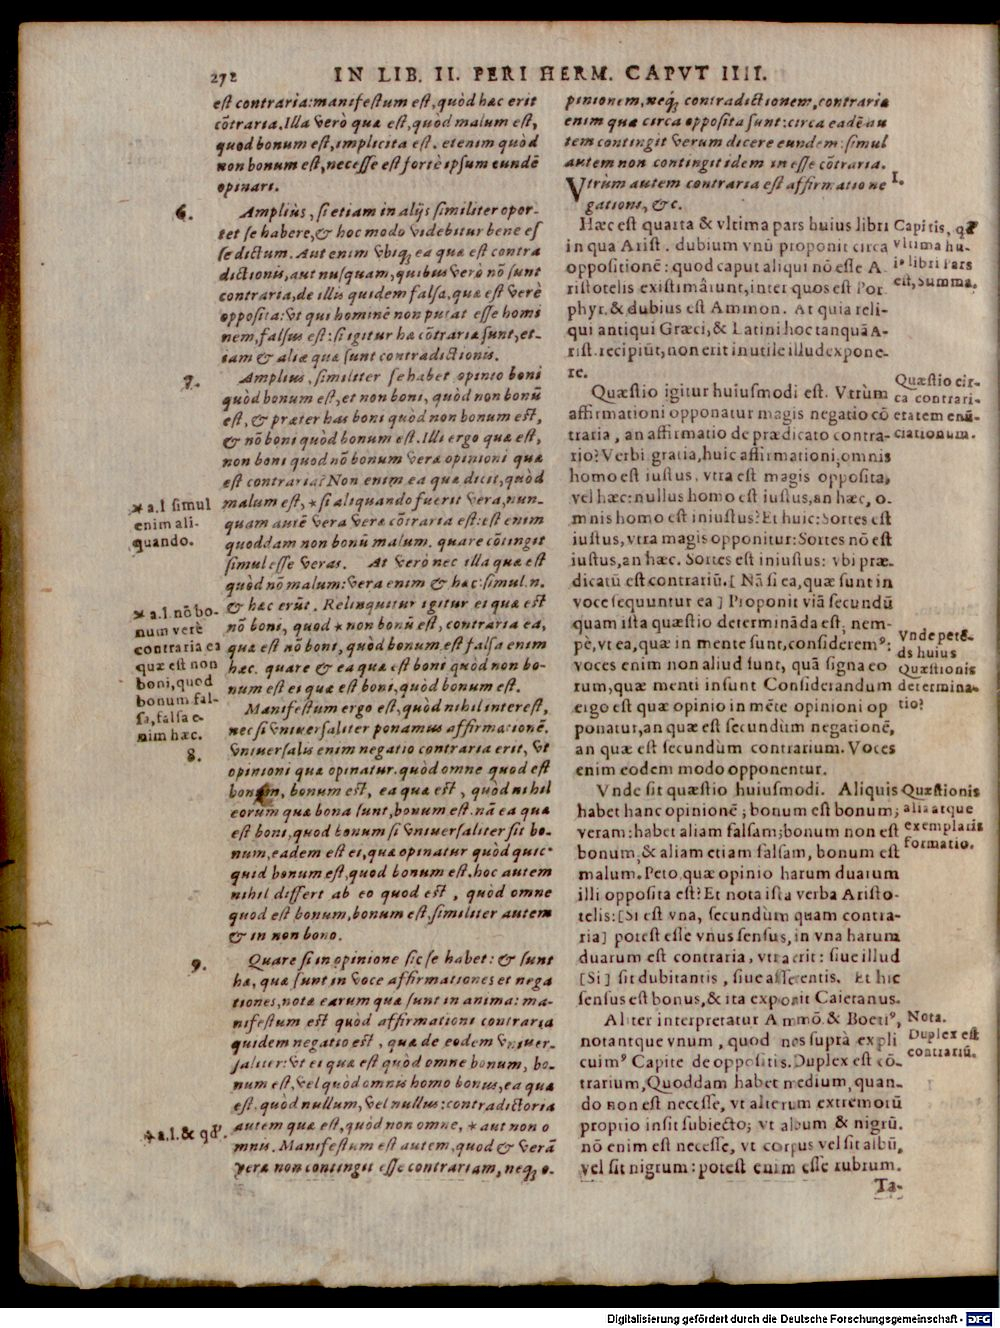 272
IN LIB. II. PERI HERM. CAPVT IIII.
est contraria: manifestum est, quòd hæc erit
cõtraria. Illa verò quæ est, quòd malum est,
quod bonum est, implicita est. etenim quòd
non bonum est, necesse est fortè ipsum eundē
opinari.
6.
Ampliùs, si etiam in alijs similiter opor-
tet se habere, & hoc modo videbitur bene es
se dictum. Aut enim vbiq; ea quæ est contra
dictionis, aut nusquam, quibus verò nõ sunt
contraria, de illis quidem falsa, quæ est verè
opposita: vt qui hominē non putat esse homi
nem, falsus est: si igitur hæ cõtrariæ sunt, et-
iam & aliæ quæ sunt contradictionis.
7.
Amplius, similiter se habet opinio boni
quòd bonum est, et non boni, quòd non bonũ
est, & præter has boni quòd non bonum est,
& nõ boni quòd bonum est. Illi ergo quæ est,
non boni quod nõ bonum veræ opinioni quæ
est contraria? Non enim ea quæ dicit, quòd
malum est, * si aliquando fuerit vera, nun-
quam autē vera veræ cõtraria est: est enim
quoddam non bonũ malum. quare cõtingit
simul esse veras. At verò nec illa quæ est
quòd nõ malum: vera enim & hæc: simul. n.
& hæc erũt. Relinquitur igitur ei quæ est
nõ boni, quod * non bonũ est, contraria ea,
quæ est nõ boni, quòd bonum est falsa enim
hæc. quare & ea quæ est boni quòd non bo-
num est ei quæ est boni, quòd bonum est.
* a.l simul
enim ali-
quando.
* a.l. nõ bo-
num verè
contraria ea
quæ est non
boni, quod
bonum fal-
sa, falsa e-
nim hæc.
8.
Manifestum ergo est, quòd nihil interest,
nec si vniversaliter ponamus affirmationē.
vniuersalis enim negatio contraria erit, vt
opinioni quæ opinatur. quòd omne quod est
bonum, bonum est, ea quæ est, quòd nihil
eorum quæ bona sunt, bonum est. nã ea quæ
est boni, quod bonum si vniuersaliter sit bo-
num, eadem est ei, quæ opinatur quòd quic-
quid bonum est, quod bonum est. hoc autem
nihil differt ab eo quod est, quòd omne
quod est bonum, bonum est. similiter autem
& in non bono.
9.
Quare si in opinione sic se habet: & sunt
hæ, quæ sunt in voce affirmationes et nega
tiones, notæ earum quæ sunt in anima: ma-
nifestum est quòd affirmationi contraria
quidem negatio est, quæ de eodem vniuer-
saliter: vt ei quæ est quòd omne bonum, bo-
num est, vel quòd omnis homo bonus, ea quæ
est. quòd nullum, vel nullus: contradictoria
autem quæ est, quòd non omne, * aut non o
mnis. Manifestum est autem, quod & verã
veræ non contingit esse contrariam, neq; o-
* a.l. & qđ.
pinionem, neq; contradictionem, contrariæ
enim quæ circa opposita sunt: circa eadē au
tem contingit verum dicere eundem: simul
autem non contingit idem in esse cõtraria.
Vtrùm autem contraria est affirmatio ne
gationi, &c.
I.
Hæc est quarta & vltima pars huius libri
in qua Arist. dubium vnũ proponit circa
oppositionē: quod caput aliqui nõ esse A
ristotelis existimârunt, inter quos est Por
phyr. & dubius est Ammon. At quia reli-
qui antiqui Græci, & Latini hoc tanquã A-
rist. recipiũt, non erit inutile illud expone-
re.
Capitis, qđ
vltima hu-
iᵒ libri Pars
est, Summa.
Quæstio igitur huiusmodi est. Vtrùm
affirmationi opponatur magis negatio cõ
traria, an affirmatio de prædicato contra-
rio? Verbi gratia, huic affirmationi, omnis
homo est iustus, vtra est magis opposita,
vel hæc: nullus homo est iustus, an hæc, o-
mnis homo est iniustus? Et huic: Sortes est
iustus, vtra magis opponitur: Sortes nõ est
iustus, an hæc. Sortes est iniustus: vbi præ-
dicatũ est contrariũ. [ Nã si ea, quæ sunt in
voce sequuntur ea ] Proponit viã secundũ
quam ista quæstio determinãda est, nem-
pè, vt ea, quæ in mente sunt, consideremꝰ:
voces enim non aliud sunt, quã signa eo
rum, quæ menti insunt Considerandum
ergo est quæ opinio in mēte opinioni op
ponatur, an quæ est secundùm negationē,
an quæ est secundùm contrarium. Voces
enim eodem modo opponentur.
Quæstio cir-
ca contrari-
etatem enũ-
ciationum.
Vnde petē-
ds huius
Quæstionis
determina-
tio?
Vnde sit quæstio huiusmodi. Aliquis
habet hanc opinionē; bonum est bonum;
veram: habet aliam falsam; bonum non est
bonum, & aliam etiam falsam, bonum est
malum. Peto, quæ opinio harum duarum
illi opposita est? Et nota ista verba Aristo-
telis: [Si est vna, secundùm quam contra-
ria] potest esse vnus sensus, in vna harum
duarum est contraria, vtra erit: siue illud
[Si] sit dubitantis, siue asserentis. Et hic
sensus est bonus, & ita exponit Caietanus.
Quæstionis
alia atque
exemplaris
formatio.
Aliter interpretatur Ammõ. & Boetiꝰ,
notantque vnum, quod nos suprà expli
cuimꝰ Capite de oppositis. Duplex est cõ-
trarium, Quoddam habet medium, quan-
do non est necesse, vt alterum extremorũ
proprio insit subiecto; vt album & nigrũ.
nõ enim est necesse, vt corpus vel sit albũ,
vel sit nigrum: potest enim esse rubrum.
Nota.
Duplex est
contrariũ.
Ta-
Digitalisierung gefördert durch die Deutsche Forschungsgemeinschaft - DFG